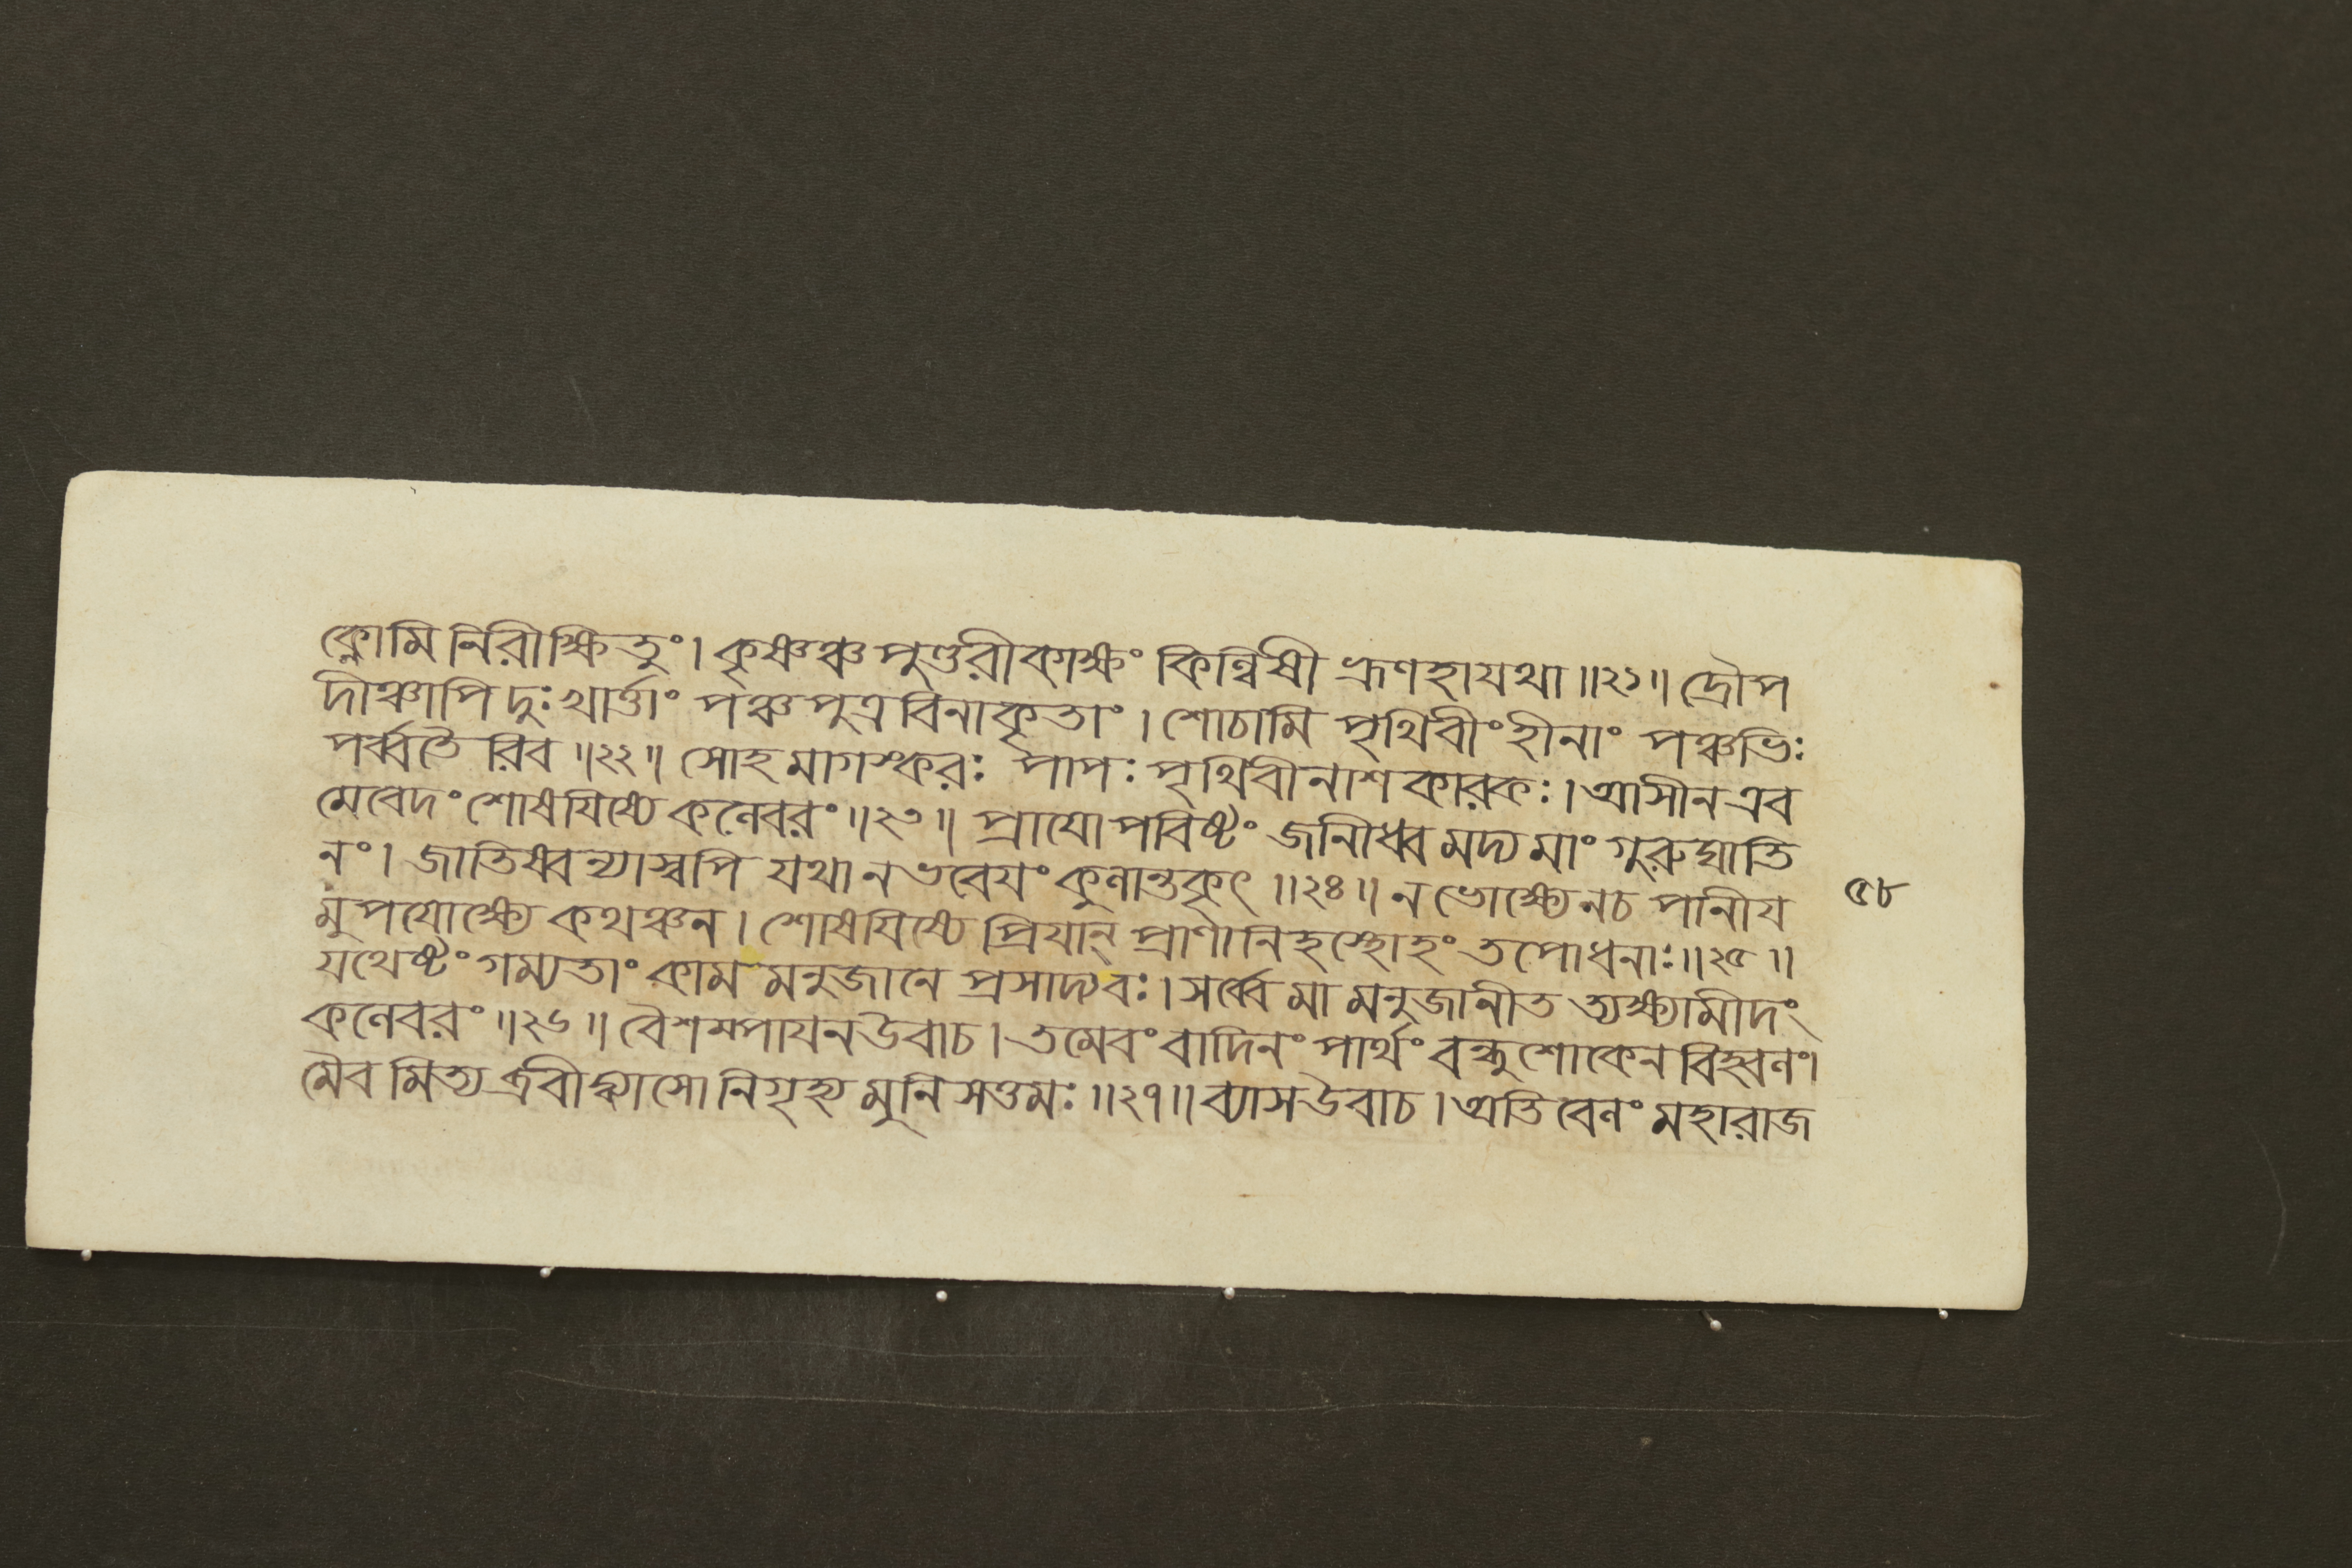 ক্নোমি নিরীক্ষিতুং। কৃষ্ণঞ্চ পুণ্ডরীকাক্ষং কিন্বিষী ভ্রূণহা যথা॥২১॥ দ্রৌপ
দীঞ্চাপি দুঃখার্ত্তাং পঞ্চপুত্রবিনাকৃতাং। শোচামি পৃথিবীং হীনাং পঞ্চভিঃ
পর্ব্বতৈ রিব॥২২॥ সোহমাগস্করঃ পাপঃ পৃথিবীনাশকারকঃ। আসীন এব
মেবেদং শোষযিষ্যে কনেবরং॥২৩॥ প্রাযোপবিষ্টং জানীধ্ব মদ্য মাং গুরুঘাতি
নং। জাতিষ্বন্যাস্বপি যথা ন ভবেযং কুনান্তকৃৎ॥২৪॥ ন ভোক্ষ্যে নচ পানীয
মুপযোক্ষ্যে কথঞ্চন। শোষযিষ্যে প্রিযান্ প্রাণানিহস্থোহং তপোধনাঃ॥২৫॥
যথেষ্টং গম্যতাং কাম মনুজানে প্রসাদ্যবঃ। সর্ব্বে মা মনুজানীত ত্যক্ষ্যামীদং
কনেবরং॥২৬॥ বৈশম্পাযন উবাচ। তমেবং বাদিনং পার্থং বন্ধুশোকেন বিহ্বনং।
মৈব মিত্য ব্রবীদ্ব্যাসো নিগৃহ্য মুনিসত্তমঃ॥২৭॥ ব্যাস উবাচ। অতিবেনং মহারাজ
৫৮